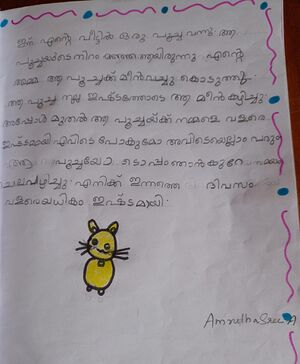 ഇന്ന് എന്റെ വീട്ടിൽ ഒരു പൂച്ച വന്നു. ആ
പൂച്ചയുടെ നിറം മഞ്ഞയായിരുന്നു. എന്റെ
അമ്മ ആ പൂച്ചക്ക് മീൻവച്ചു കൊടുത്തു.
ആ പൂച്ച നല്ല ഇഷ്ടത്തോടെ ആ മീൻ കഴിച്ചു.
അപ്പോൾ മുതൽ ആ പൂച്ചയ്ക്ക് നമ്മളെ വളരെ
ഇഷ്ടമായി എവിടെ പോകുമോ അവിടെയെല്ലാം വരും
ആ പൂച്ചയോടൊപ്പം ഞാൻ കുറേ സമയം
ചെലവഴിച്ചു. എനിക്ക് ഇന്നത്തെ ദിവസം
വളരെയധികം ഇഷ്ടമായി.
AmruthaSree A